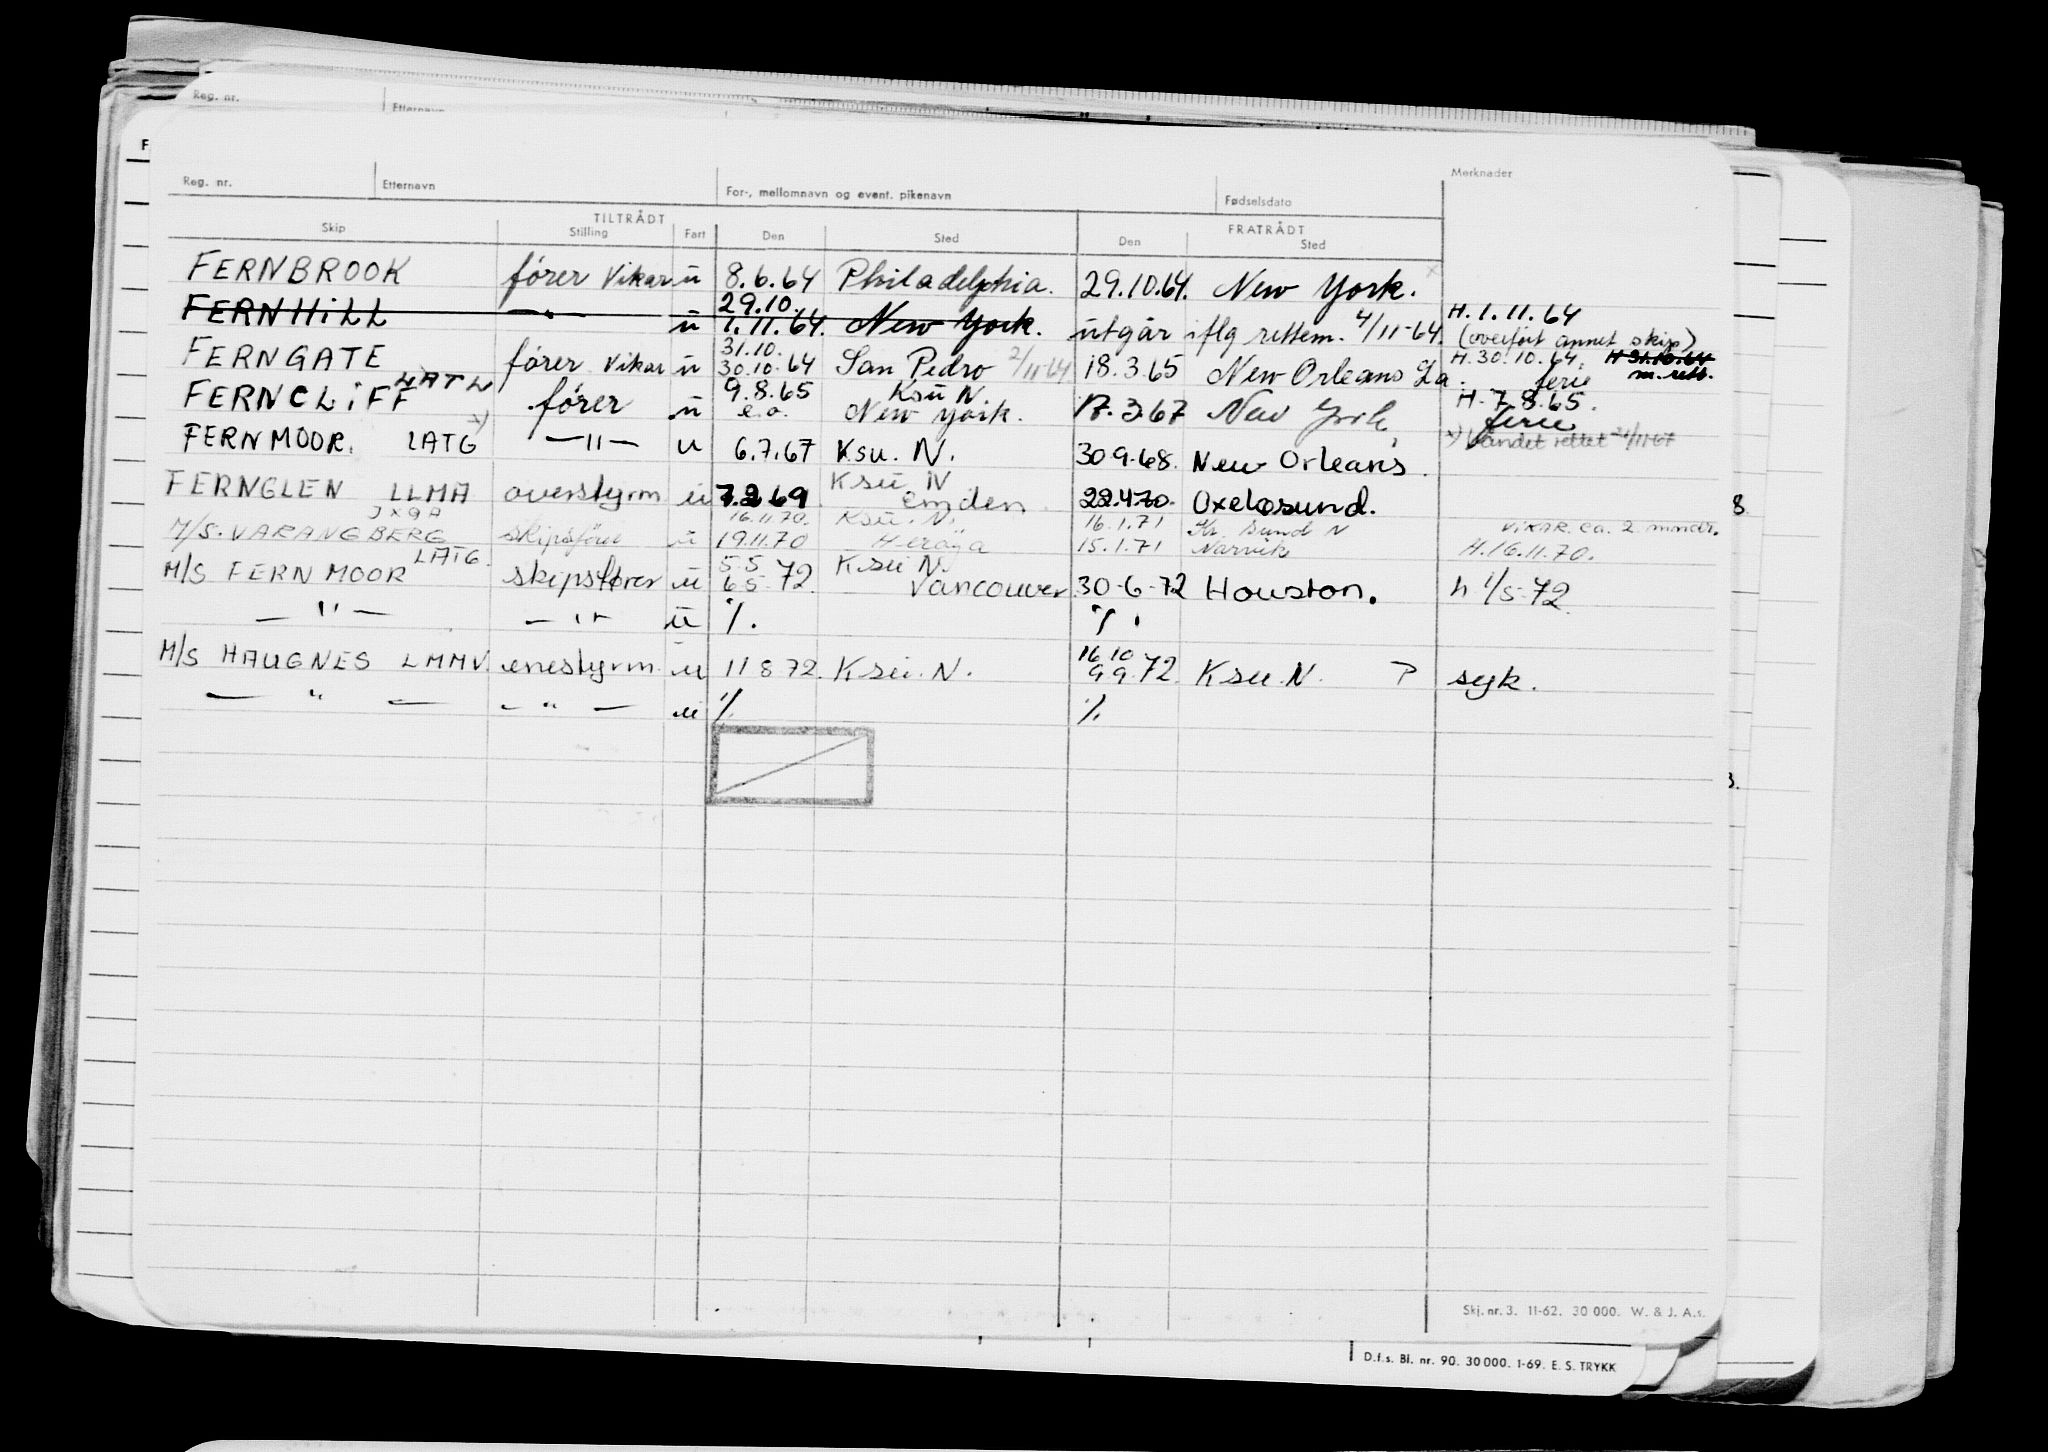 Reg. nr. Etternavn
F
Reg. nr. Etternavn For-, mellomnavn og event. pikenavn Fødselsdato Merknader
TILTRÅDT FRATRÅDT
Skip Stilling Fart Den Sted Den Sted
FERNBROOK fører Vikar u 8.6.64 Philadelphia. 29.10.64. New York.
29.10.
FERNHILL —"— u 1.11.64. New York. utgår iflg rettem. 4/11-64. H. 1.11.64 (overført annet skip)
31.10.
FERNGATE fører Vikar u 30.10.64 San Pedro 2/11-64 18.3.65 New Orleans La. H. 30.10.64. H 31.10.64 m. rett. ferie
LATW 9.8.65 Ksu N
FERNCLIFF fører u e.o. New York. 17.3.67 New York, H. 7.8.65. ferie
x)
FERNMOOR. LATG —"— u 6.7.67 Ksu. N. 30.9.68. New Orleans. x) Vandet rettet 21/11-67
Ksu N
FERNGLEN LLMA overstyrm u 7.2.69 Emden 22.4.70. Oxelosund. 8
JXQA 16.11.70. Ksu. N. 16.1.71 Kr. Sund N VIKAR ca. 2 mndr.
M/S. VARANGBERG skipsfører u 19.11.70 Herøya 15.1.71 Narvik H. 16.11.70.
LATG. 5.5 Ksu N.
M/S FERNMOOR skipsfører u 6.5.72. Vancouver 30-6-72 Houston. h 1/5-72.
—"— —"— u %. %.
16.10
M/S HAUGNES LMMV. enestyrm. u 11 8 72. Ksu. N. 9.9.72. Ksu. N. ? syk.
— " — — " — u % %
3.
Skj. nr. 3. 11-62. 30 000. W. & J. A.s.
D.f.s. Bl. nr. 90. 30 000. 1-69. E. S. TRYKK